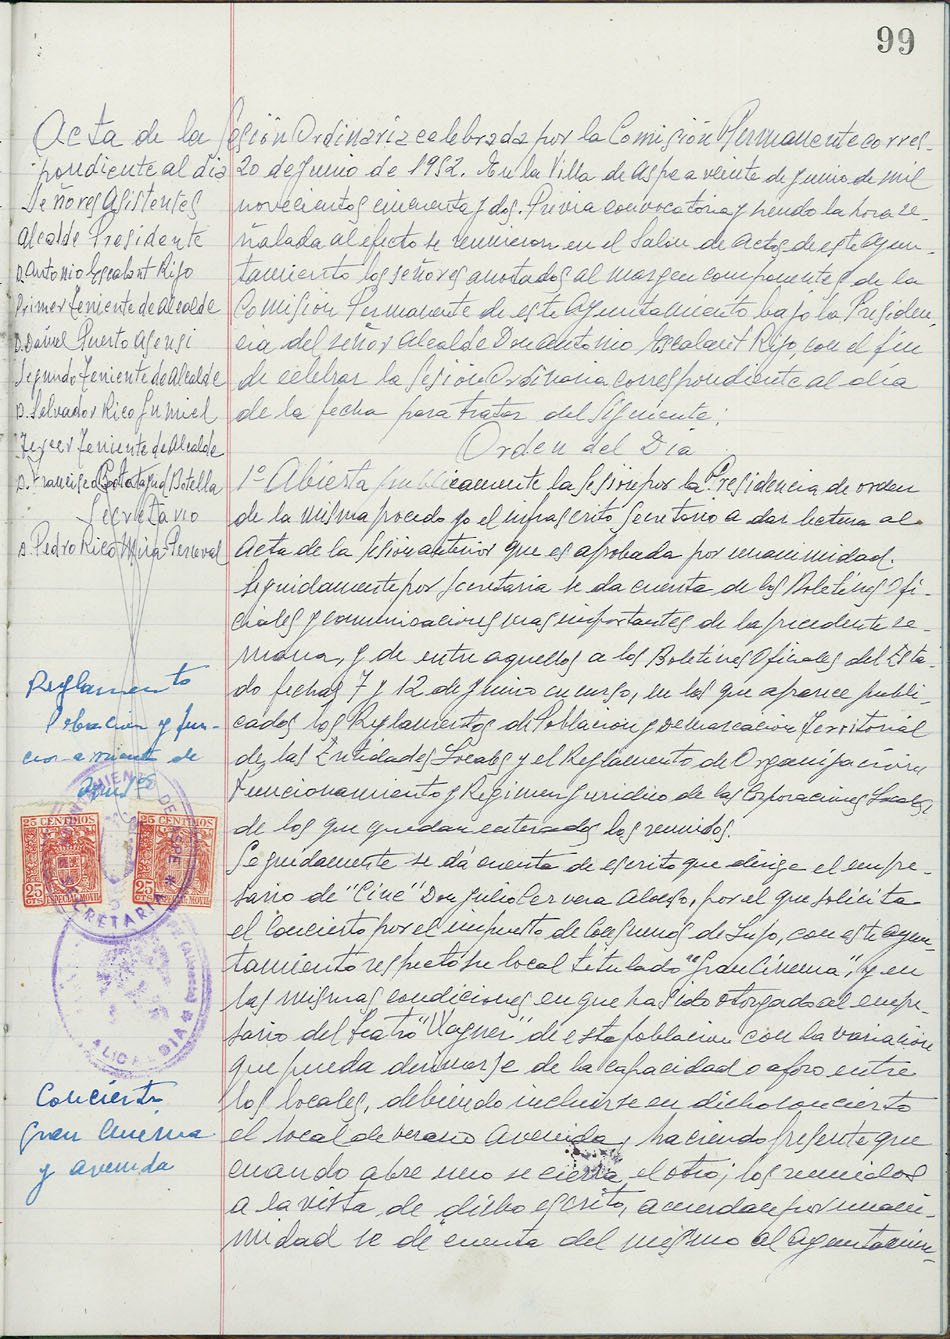 99
Acta de la Sesión Ordinaria celebrada por la Comisión Permanente corres-
pondiente al dia 20 de Junio de 1952. En la Villa de Aspe a veinte de Junio de mil
novecientos cincuenta y dos. Previa convocatoria y siendo la hora se-
ñalada al efecto se reunieron en el Salón de Actos de este Ayun-
tamiento los señores anotados al margen componentes de la
Comisión Permanente de este Ayuntamiento, bajo la Presiden-
cia del señor Alcalde Don Antonio Escalant Rifo, con el fin
de celebrar la Sesión Ordinaria correspondiente al día
de la fecha para tratar del siguiente:
Orden del Dia
1º Abierta publicamente la Sesión por la Presidencia de orden
de la misma procedo yo el infrascrito Secretario a dar lectura al
Acta de la Sesión anterior que es aprobada por unanimidad.
Seguidamente por Secretaria se da cuenta de los Boletines Ofi-
ciales y comunicaciones mas importantes de la precedente se-
mana, y de entre aquellos a los Boletines Oficiales del Esta-
do fechas 7 y 12 de Junio en curso, en los que aparece publi-
cados los Reglamentos de Población y Demarcacion Territorial
de las Entidades Locales y el Reglamento de Organización
Funcionamiento y Regimen Juridico de las Corporaciones Locales
de los que quedan enterados los reunidos.
Seguidamente se dá cuenta de escrito que dirige el empre-
sario de "Cine" Don Julio Cervera Alonso, por el que solicita
el Concierto por el impuesto de Consumos de Lujo, con este Ayun-
tamiento respecto su local titulado "Gran Cinema", y en
las mismas condiciones en que ha sido otorgado al empre-
sario del Teatro "Wagner" de esta poblacion con la variación
que pueda derivarse de la capacidad o aforo entre
los locales, debiendo incluirse en dicho concierto
el local de verano Avenida, haciendo presente que
cuando abre uno se cierra el otro; los reunidos
a la vista de dicho escrito, acuerdan por unani-
midad se de cuenta del mismo al Ayuntamien-
Señores Asistentes
Alcalde Presidente
D. Antonio Escalant Rifo
Primer Teniente de Alcalde
D. Daniel Puerto Asensi
Segundo Teniente de Alcalde
D. Salvador Rico Gumiel
Tercer Teniente de Alcalde
D. Francisco Botella
Secretario
D. Pedro Rico Mira-Perceval
Reglamento
Poblacion y fun-
cionamiento de
25 CENTIMOS
25
CTS ESPECIAL MOVIL
25 CENTIMOS
25
CTS ESPECIAL MOVIL
AYUNTAMIENTO DE ASPE
SECRETARIA
ALCALDIA
Concierto
Gran Cinema
y avenida